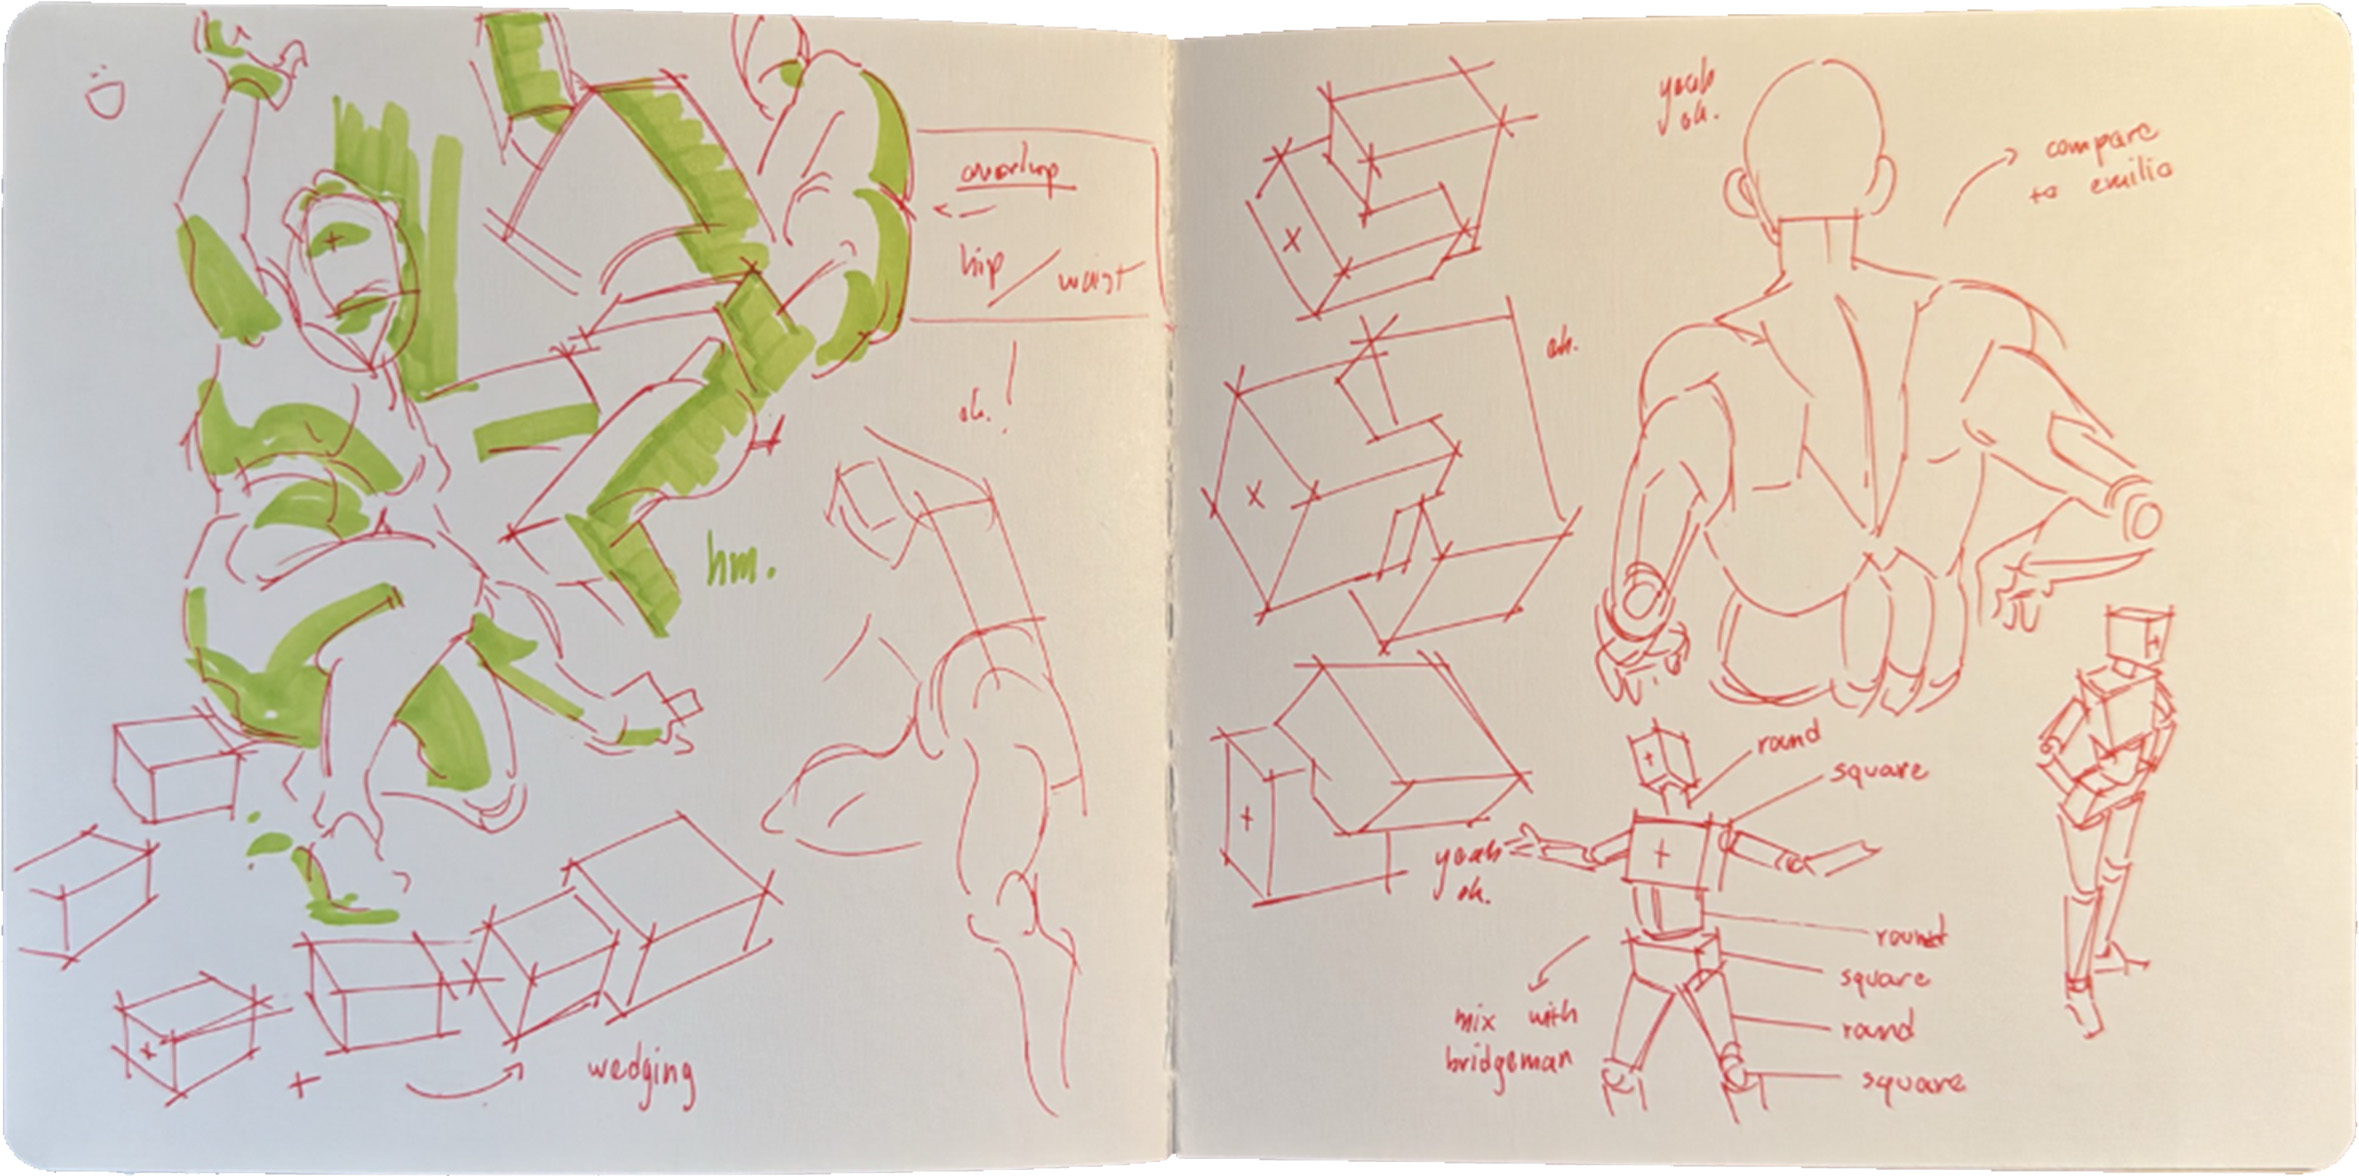 overlap
hip / waist
oh.!
hm.
+
wedging
yeah
oh.
compare
to emilio
oh.
yeah
oh.
mix with
bridgeman
round
square
round
square
round
square